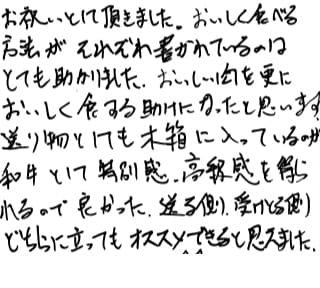 お祝いとして頂きました。おいしく食べる
方法がそれぞれ書かれているのは
とても助かりました。おいしい肉を更に
おいしく食する助けになったと思います
送り物としても木箱に入っているのが
和牛として特別感、高級感を得ら
れるので良かった。送る側、受けとる側
どちらに立ってもオススメできると思えました。